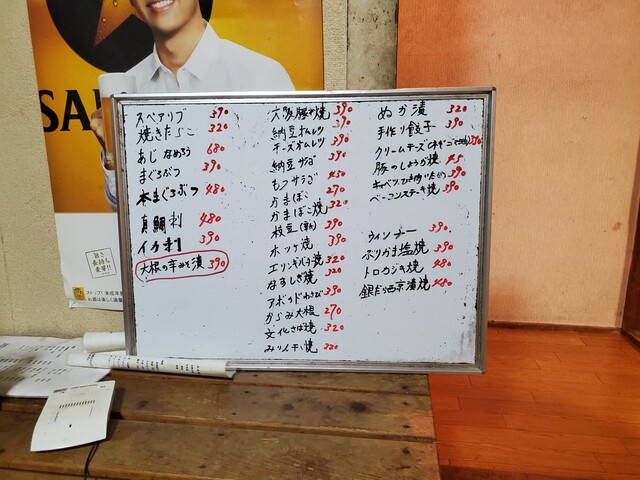 SA
スペアリブ 390
焼きたらこ 320
あじなめろう 680
まぐろぶつ 390
本まぐろぶつ 480
真鯛刺 480
イカ刺 390
大根の辛みそ漬 390
大阪豚ネギ焼 390
納豆オムレツ 390
チーズオムレツ 390
納豆サラダ 390
もつサラダ 450
かまぼこ 270
かまぼこ焼 320
枝豆 390
ホッケ焼 390
エリンギバター焼 320
なすしぎ焼 320
アボカドわさび 390
からみ大根 270
文化さば焼 320
みりん干し焼 320
ぬか漬 320
手作り餃子 390
クリームチーズ 390
豚のしょうが焼 45
キャベツ 390
ベーコンステーキ焼 390
ウィンナー 390
ぶりかま塩焼 390
トロカジキ焼 480
銀だら西京漬焼 480
ストップ！未成年